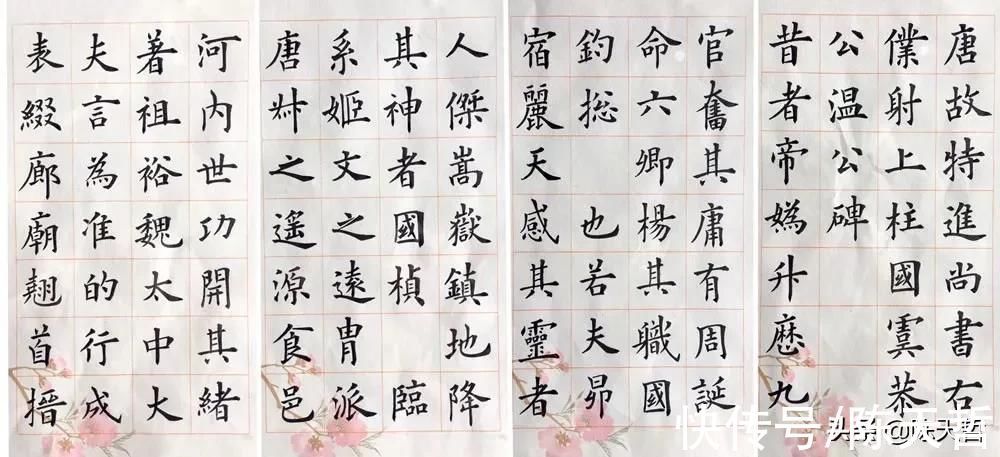 唐故特進尚書右
僕射上柱國虞恭
公温公碑
昔者帝媯升厯九
官奮其庸有周誕
命六卿楊其職國
釣捴 也若夫昴
宿麗天感其靈者
人傑嵩嶽鎮地降
其神者國楨 臨
系姬文之遠胄派
唐叔之遥源食邑
河内世功開其緒
著祖裕魏太中大
夫言為准的行成
表綴廊廟翹首搢
快传号/陈天哲
头条 @陈天哲